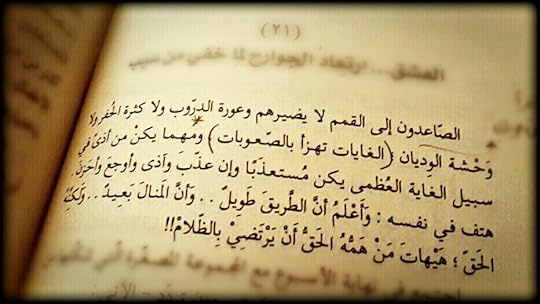 (٢١)
العشق... ارتعاد الجوارح لما خفي من سبب
الصّاعدون إلى القمم لا يضيرهم وعورة الدرّوب ولا كثرة الحُفر ولا
وَحْشة الوِديان ؛ (الغايات تهزأ بالصّعوبات) ومهما يكنْ من أذىً في
سبيل الغاية العُظمى يكن مُستعذَبًا وإن عذّب وآذى وأوجعَ وأحزنَ.
هتف في نفسه : وَأَعْلَمُ أنَّ الطَّريقَ طَوِيلٌ .. وأنَّ المَنالَ بَعِيدٌ .. وَلَكِنَّهُ
الحَقّ ؛ هَيْهاتَ مَنْ هَمُّهُ الحَقُّ أَنْ يَرْتَضِيْ بِالظَّلامْ!!
في نهاية الأسبوع مع المجموعة المصغّرة